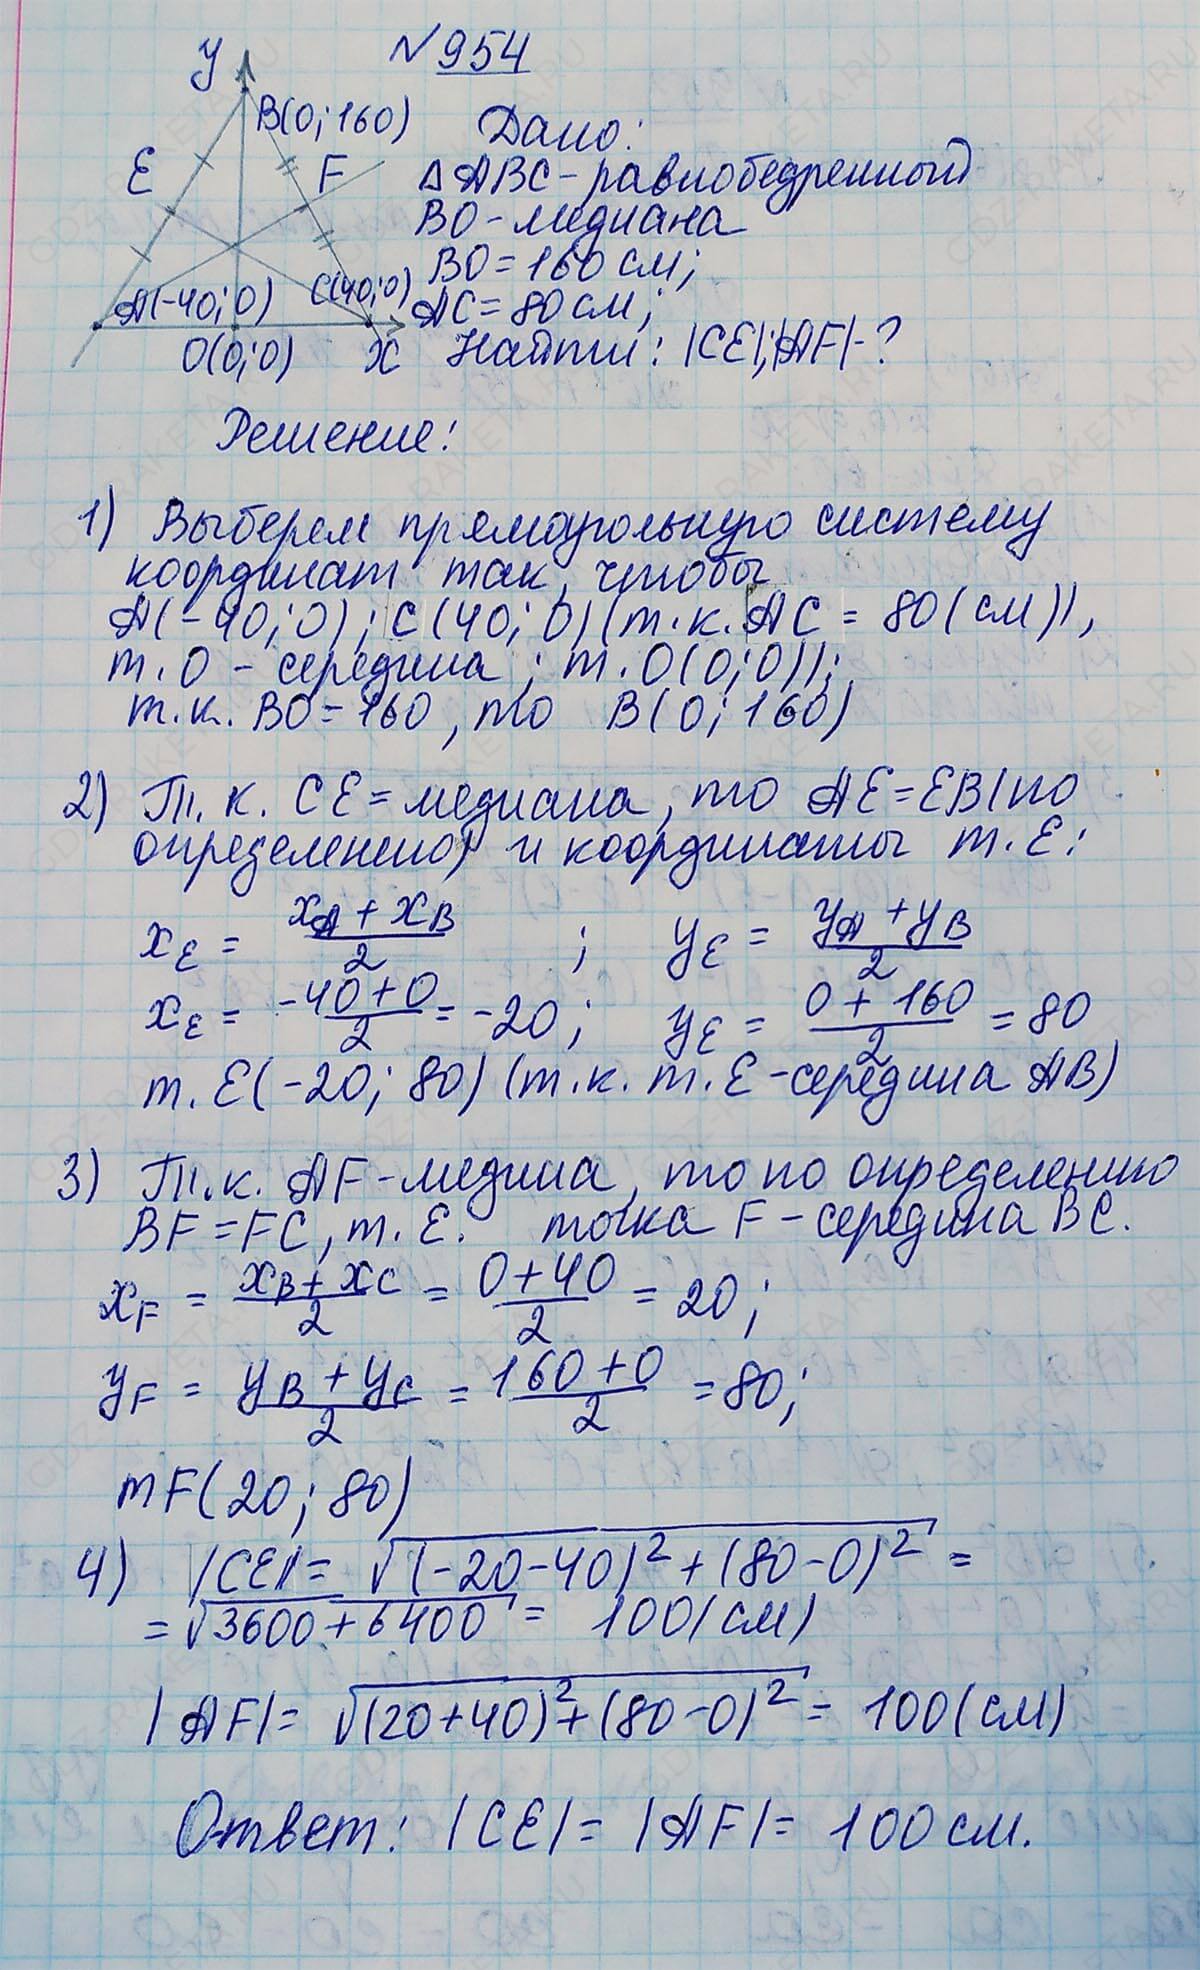 N 954
y
B(0; 160)
E
F
A(-40; 0)
C(40; 0)
O(0; 0)
X
Дано:
Δ ABC - равнобедренный
BO - медиана
BO = 160 см;
AC = 80 см;
Найти: |CE|; |AF| - ?
Решение:
1) Выберем прямоугольную систему
координат так, чтобы
A(-40; 0); C(40; 0) (т.к. AC = 80 (см)),
т. O - середина; т. O(0; 0));
т.к. BO = 160, то B(0; 160)
2) Т.к. CE = медиана, то AE = EB (по
определению) и координаты т. E:
x_E = (x_A + x_B)/2 ; y_E = (y_A + y_B)/2
x_E = (-40 + 0)/2 = -20; y_E = (0 + 160)/2 = 80
т. E(-20; 80) (т.к. т. E - середина AB)
3) Т.к. AF - медина, то по определению
BF = FC, т. E. точка F - середина BC.
x_F = (x_B + x_C)/2 = (0 + 40)/2 = 20;
y_F = (y_B + y_C)/2 = (160 + 0)/2 = 80;
т F(20; 80)
4) |CE| = √((-20-40)² + (80-0)²) =
= √(3600 + 6400) = 100 (см)
|AF| = √((20+40)² + (80-0)²) = 100 (см)
Ответ: |CE| = |AF| = 100 см.